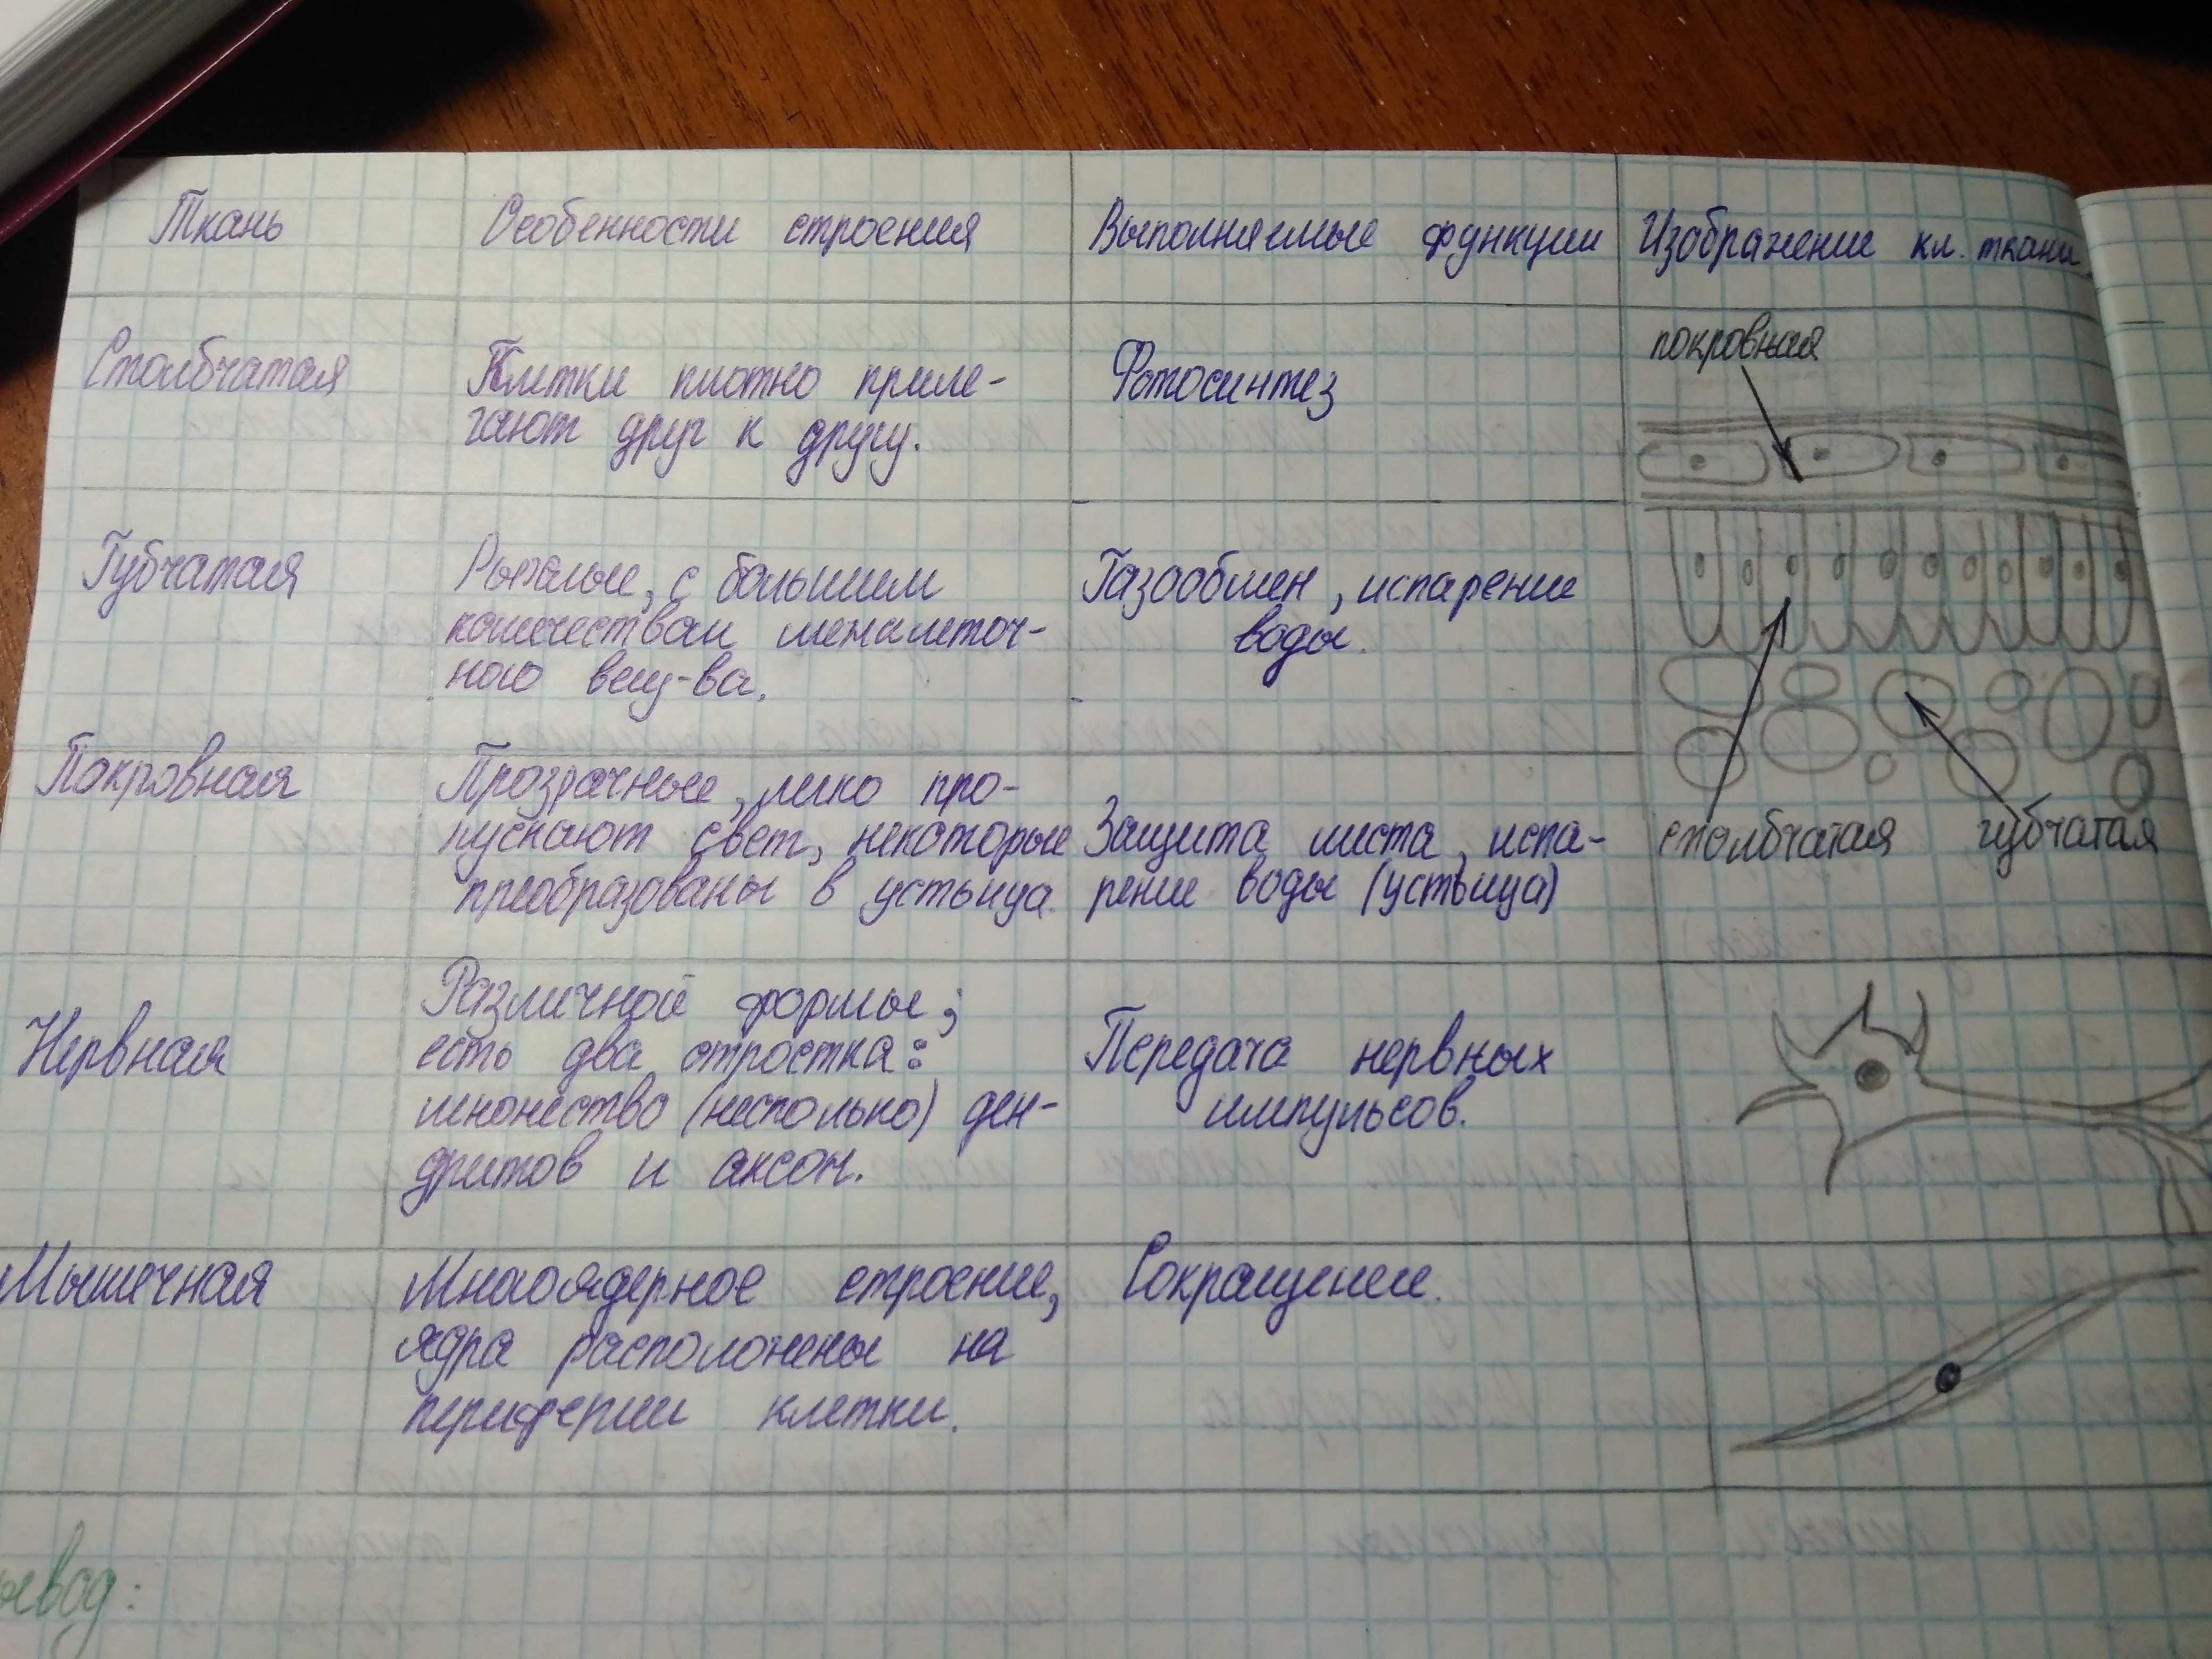 Ткань
Особенности строения
Выполняемые функции
Изображение кл. ткани
Столбчатая
Клетки плотно приле-
гают друг к другу.
Фотосинтез
покровная
Губчатая
Рыхлые, с большим
количеством межклеточ-
ного вещ-ва.
Газообмен, испарение
воды.
Покровная
Прозрачные, легко про-
пускают свет, некоторые
преобразованы в устьица.
Защита листа, испа-
рение воды (устьица)
столбчатая
губчатая
Нервная
Различной формы;
есть два отростка:
множество (несколько) ден-
дритов и аксон.
Передача нервных
импульсов.
Мышечная
Многоядерное строение,
ядра расположены на
периферии клетки.
Сокращение.
ывод: